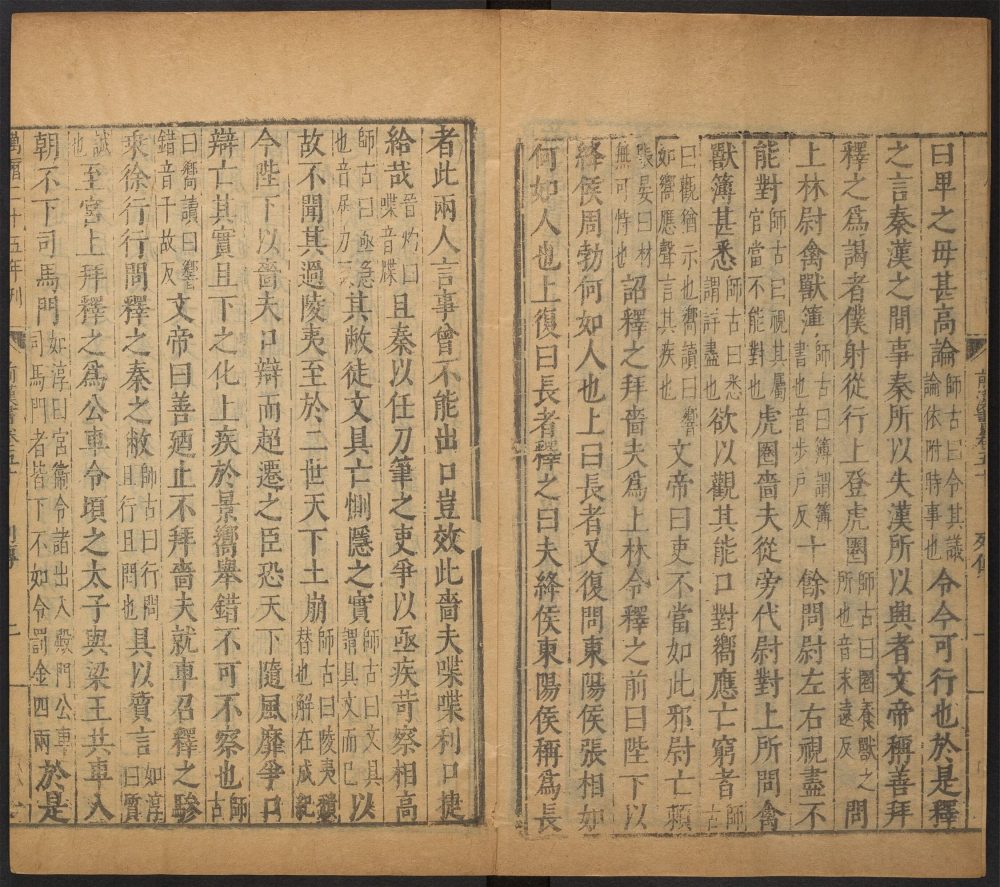 曰卑之毋甚高論師古曰令其議論依附時事也令今可行也於是釋
之言秦漢之間事秦所以失漢所以興者文帝稱善拜
釋之爲謁者僕射從行上登虎圈師古曰圈養獸之所也音求遠反問
上林尉禽獸簿師古曰簿謂簿書也音步戶反十餘問尉左右視盡不
能對師古曰視其屬官當不能對也虎圈嗇夫從旁代尉對上所問禽
獸簿甚悉師古曰悉謂詳盡也欲以觀其能口對嚮應亡窮者師古
曰觀猶示也嚮讀曰響如嚮應聲言其疾也文帝曰吏不當如此邪尉亡賴
張晏曰材無可恃也詔釋之拜嗇夫爲上林令釋之前曰陛下以
絳侯周勃何如人也上曰長者又復問東陽侯張相如
何如人也上復曰長者釋之曰夫絳侯東陽侯稱爲長
者此兩人言事曾不能出口豈效此嗇夫喋喋利口捷
給哉晉灼曰喋音牒且秦以任刀筆之吏爭以亟疾苛察相高
師古曰亟急也音居力反其敝徒文具亡惻隱之實師古曰文具謂具文而已以
故不聞其過陵夷至於二世天下土崩師古曰陵夷頹替也解在成紀
今陛下以嗇夫口辯而超遷之臣恐天下隨風靡爭口
辯亡其實且下之化上疾於景嚮舉錯不可不察也師古
曰嚮讀曰響錯音千故反文帝曰善廼止不拜嗇夫就車召釋之驂
乘徐行行問釋之秦之敝師古曰行問且行且問也具以質言如淳曰質
誠也至宮上拜釋之爲公車令頃之太子與梁王共車入
朝不下司馬門如淳曰宮衞令諸出入殿門公車司馬門者皆下不如令罰金四兩於是